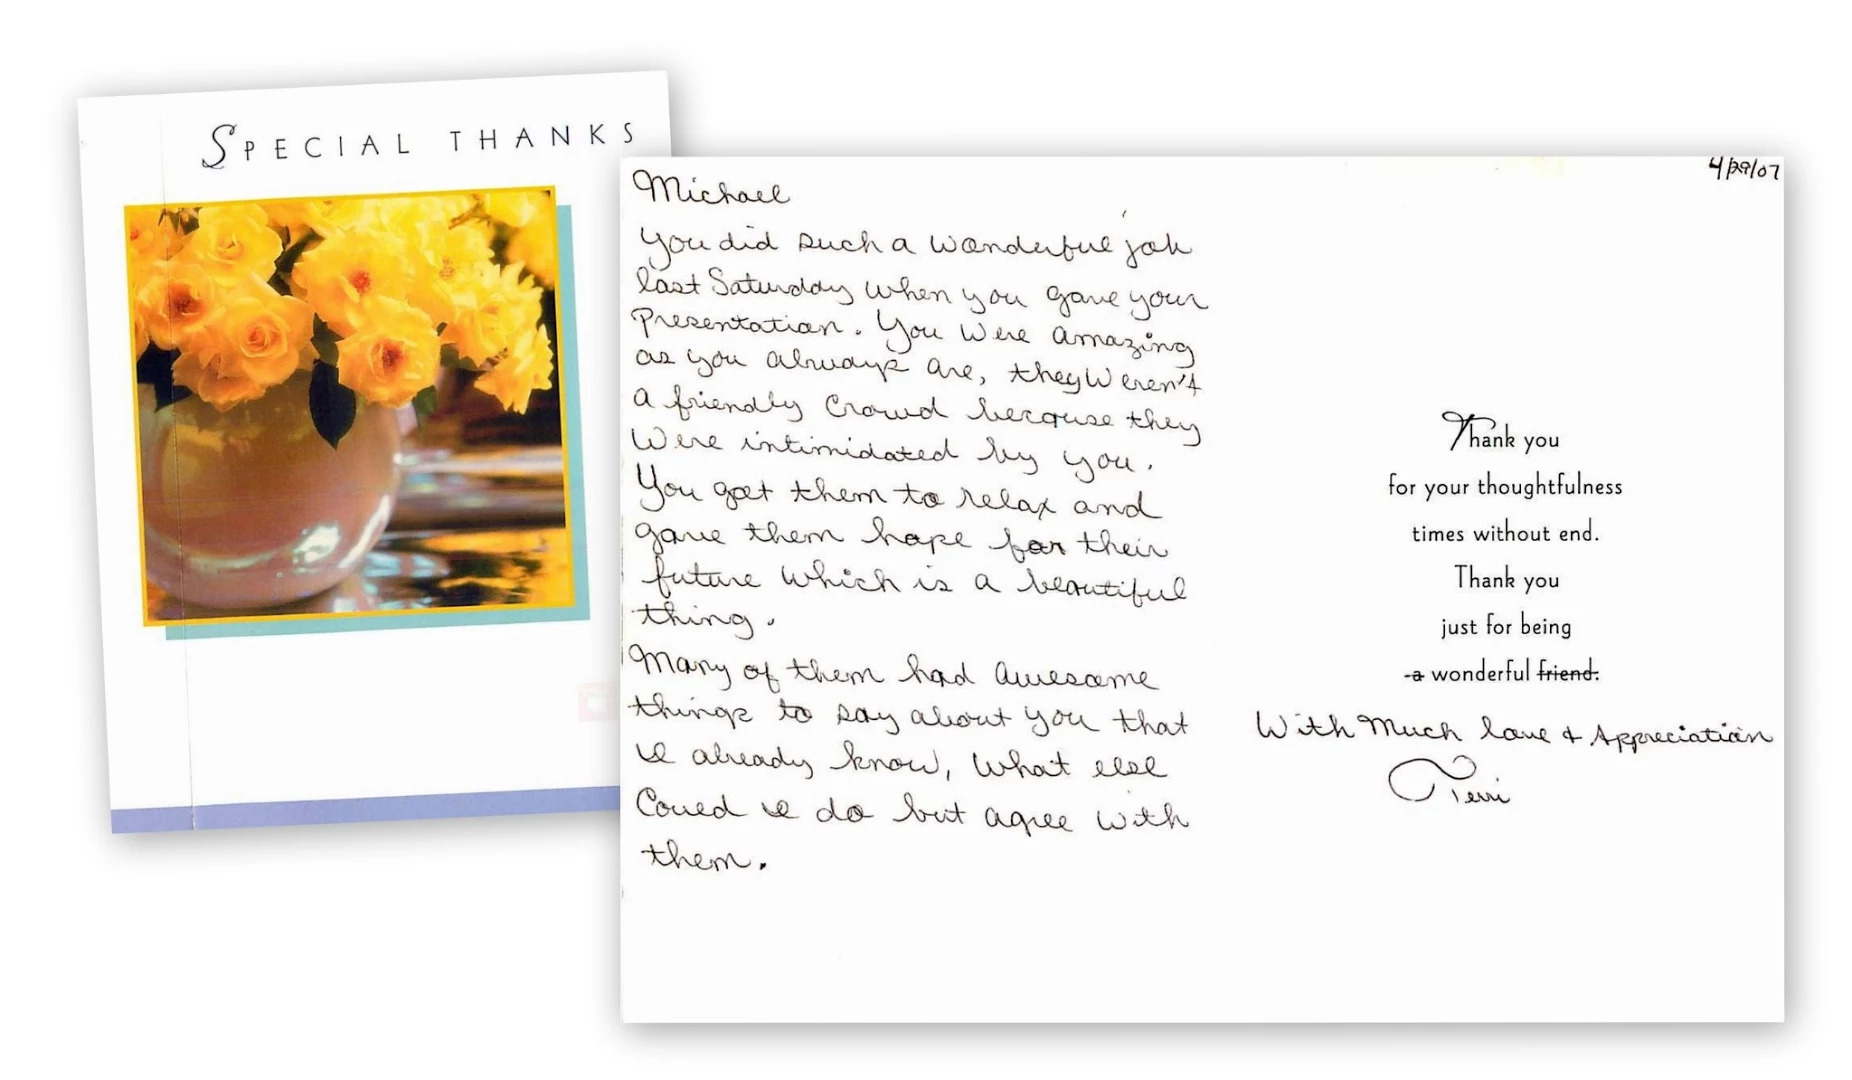 SPECIAL THANKS
4/29/07
Michael
You did such a wonderful job
last Saturday when you gave your
Presentation. You Were amazing
as you always are, they Weren't
a friendly Crowd because they
Were intimidated by you.
You got them to relax and
gave them hope for their
future which is a beautiful
thing.
Many of them had awesome
things to say about you that
already know, What else
Could do but agree with
them.
Thank you
for your thoughtfulness
times without end.
Thank you
just for being
a wonderful friend.
With Much love & Appreciation
Terri